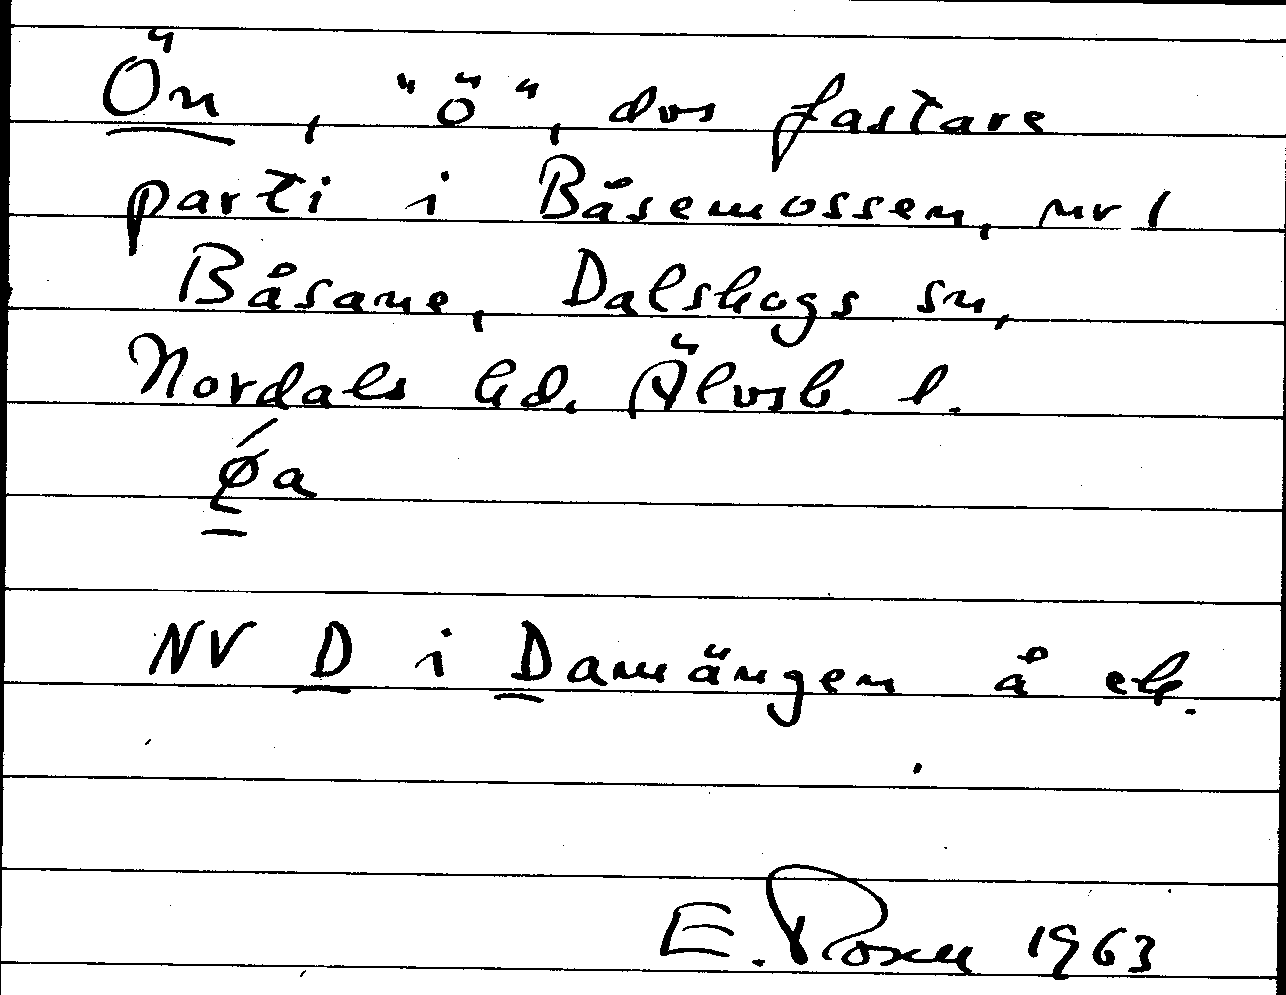 Ön, "ö", dvs fastare
parti i Båsemossen, nr 1
Båsane, Dalskogs sn,
Nordals hd. Älvsb. l.
NV D i Damängen å ek.
E. Rosell 1963